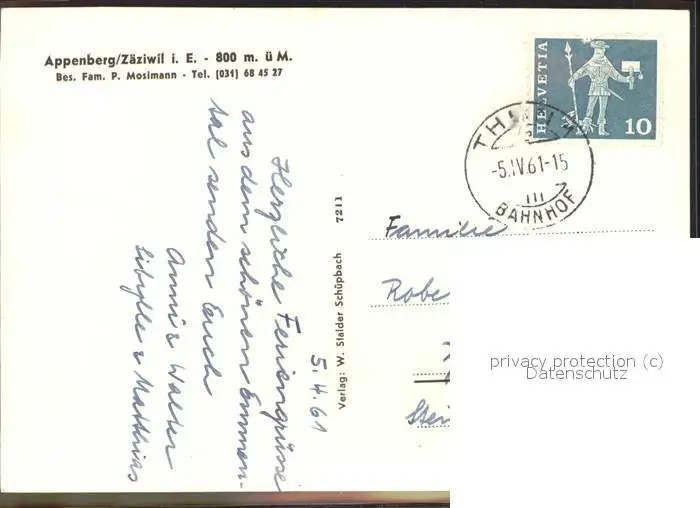 Appenberg/Zäziwil i. E. - 800 m. ü M.
Bes. Fam. P. Mosimann - Tel. (031) 68 45 27
HELVETIA
10
-5.IV.61-15
III
BAHNHOF
5.4.61
Herzliche Feriengrüsse
aus dem schönen Emmen-
tal senden Euch
Anni & Walter
Sibylle & Matthias
Verlag: W. Stalder Schüpbach 7211
Familie
Robe
Stei
privacy protection (c)
Datenschutz